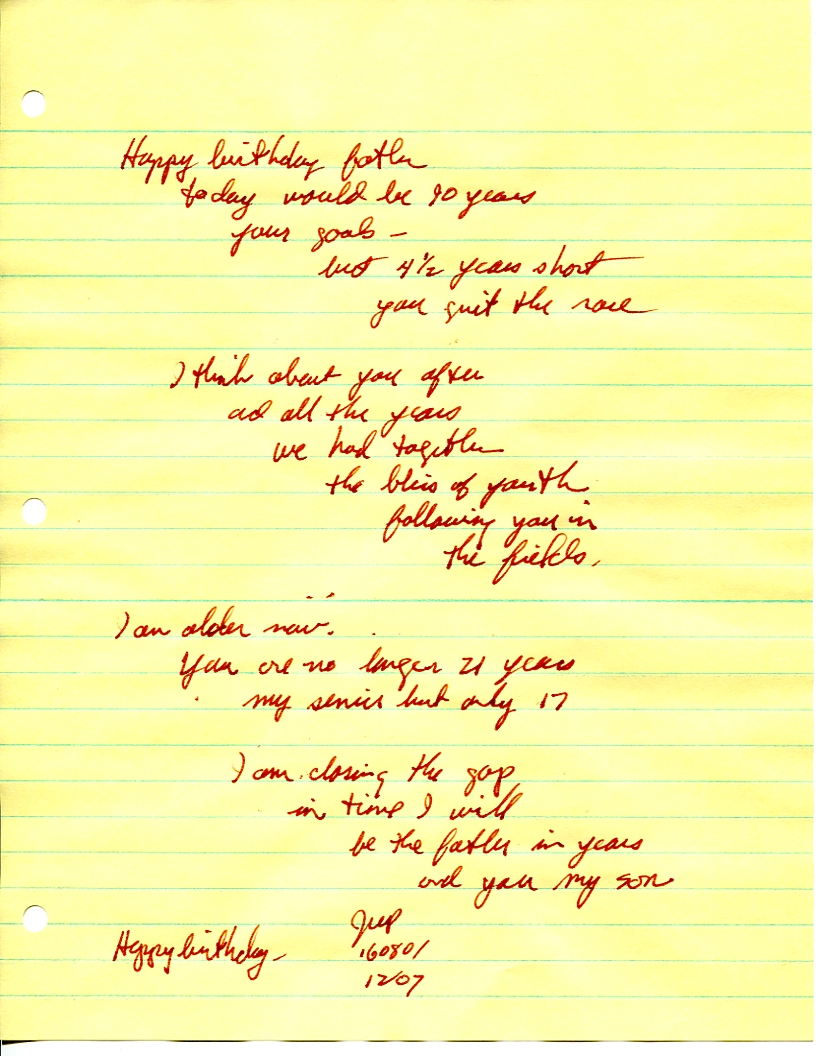 Happy birthday father
today would be 90 years
your goals –
but 4 1/2 years short
you quit the race
I think about you often
and all the years
we had together
the bliss of youth
following you in
the fields.
I am older now.
You are no longer 21 years
my senior but only 17
I am closing the gap
in time I will
be the father in years
and you my son
Happy birthday –
160801
12/07